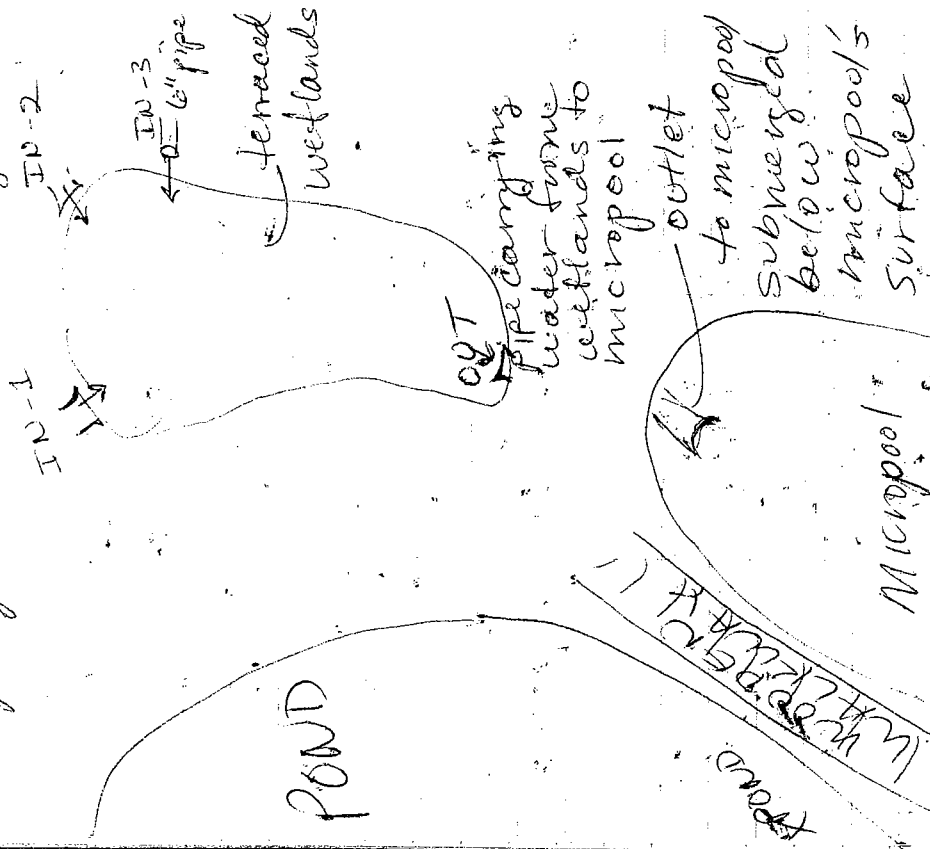 IN-1
IN-2
IN-3
6" pipe
terraced
wetlands
OUT
pipe carrying
water from
wetlands to
micropool
outlet
to micropool
submerged
below
micropool's
surface
POND
POND
Micropool